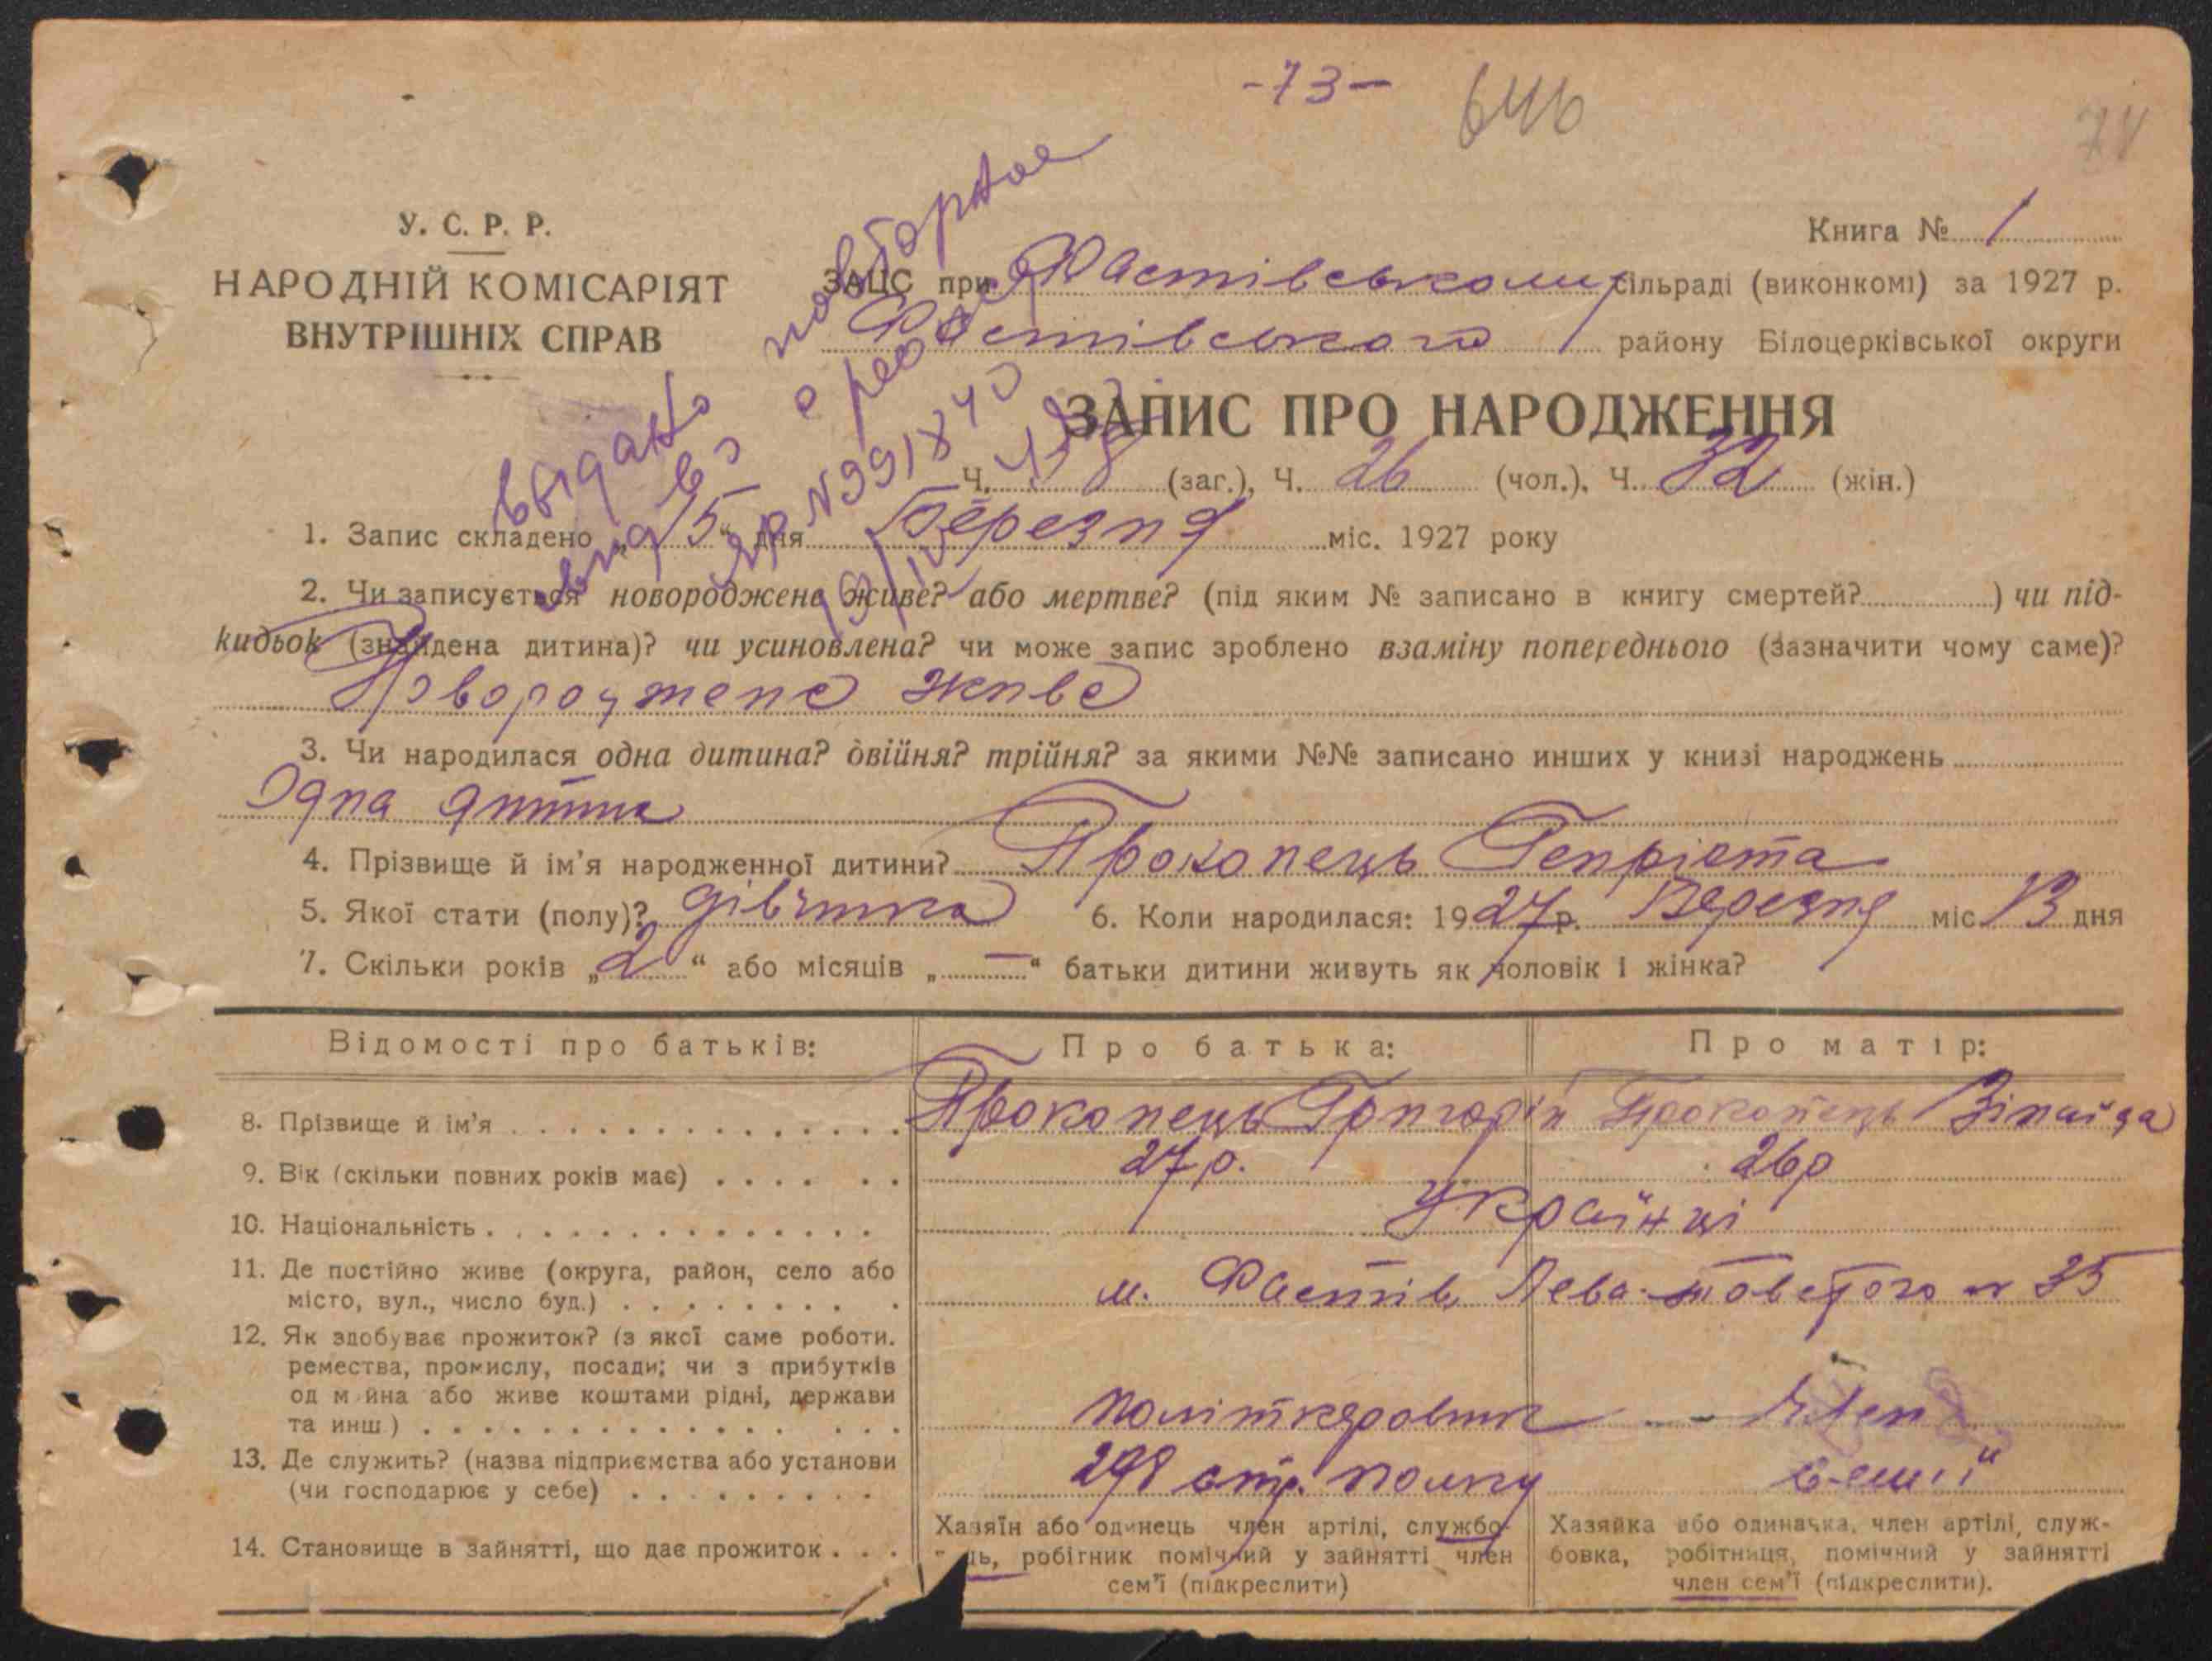 -73-
646
74
У. С. Р. Р.
НАРОДНІЙ КОМІСАРІЯТ
ВНУТРІШНІХ СПРАВ
Книга № 1
ЗАЦС при Фастівському сільраді (виконкомі) за 1927 р.
Фастівського району Білоцерківської округи
выдано повторное
ЗАПИС ПРО НАРОДЖЕННЯ
Ч. 58 (заг.), Ч. 26 (чол.), Ч. 32 (жін.)
1. Запис складено „15“ дня Березня міс. 1927 року
2. Чи записується новороджене живе? або мертве? (під яким № записано в книгу смертей? ) чи під-
кидьок (знайдена дитина)? чи усиновлена? чи може запис зроблено взаміну попереднього (зазначити чому саме)?
Новороджене живе
3. Чи народилася одна дитина? двійня? трійня? за якими №№ записано инших у книзі народжень
Одна дитина
4. Прізвище й ім'я народженної дитини? Прокопець Генрієта
5. Якої стати (полу)? дівчинка 6. Коли народилася: 1927 р. Березня міс 13 дня
7. Скільки років „2“ або місяців „—“ батьки дитини живуть як чоловік і жінка?
Відомості про батьків: Про батька: Про матір:
8. Прізвище й ім'я Прокопець Григорій Прокопець Зінаїда
9. Вік (скільки повних років має) 27 р. 26 р
10. Національність Українці
11. Де постійно живе (округа, район, село або
місто, вул., число буд.) м. Фастів Лева Товстого № 35
12. Як здобуває прожиток? (з якої саме роботи.
ремества, промислу, посади; чи з прибутків
од майна або живе коштами рідні, держави
та инш.) політкеровник Член
13. Де служить? (назва підприємства або установи
(чи господарює у себе) 298 стр. полку семії
14. Становище в зайнятті, що дає прожиток
Хазяїн або одинець член артілі, службо-
ць, робітник помічний у зайнятті член
сем'ї (підкреслити)
Хазяйка або одиначка, член артілі, служ-
бовка, робітниця, помічний у зайнятті
член сем'ї (підкреслити).